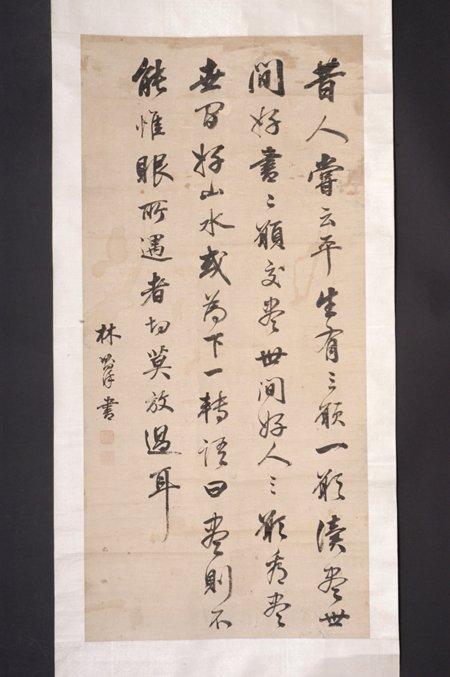 昔人嘗云平生有三願一願讀盡世
間好書二願交盡世間好人三願看盡
世間好山水或為下一轉語曰盡則不
能惟眼所遇者切莫放過耳
林 書